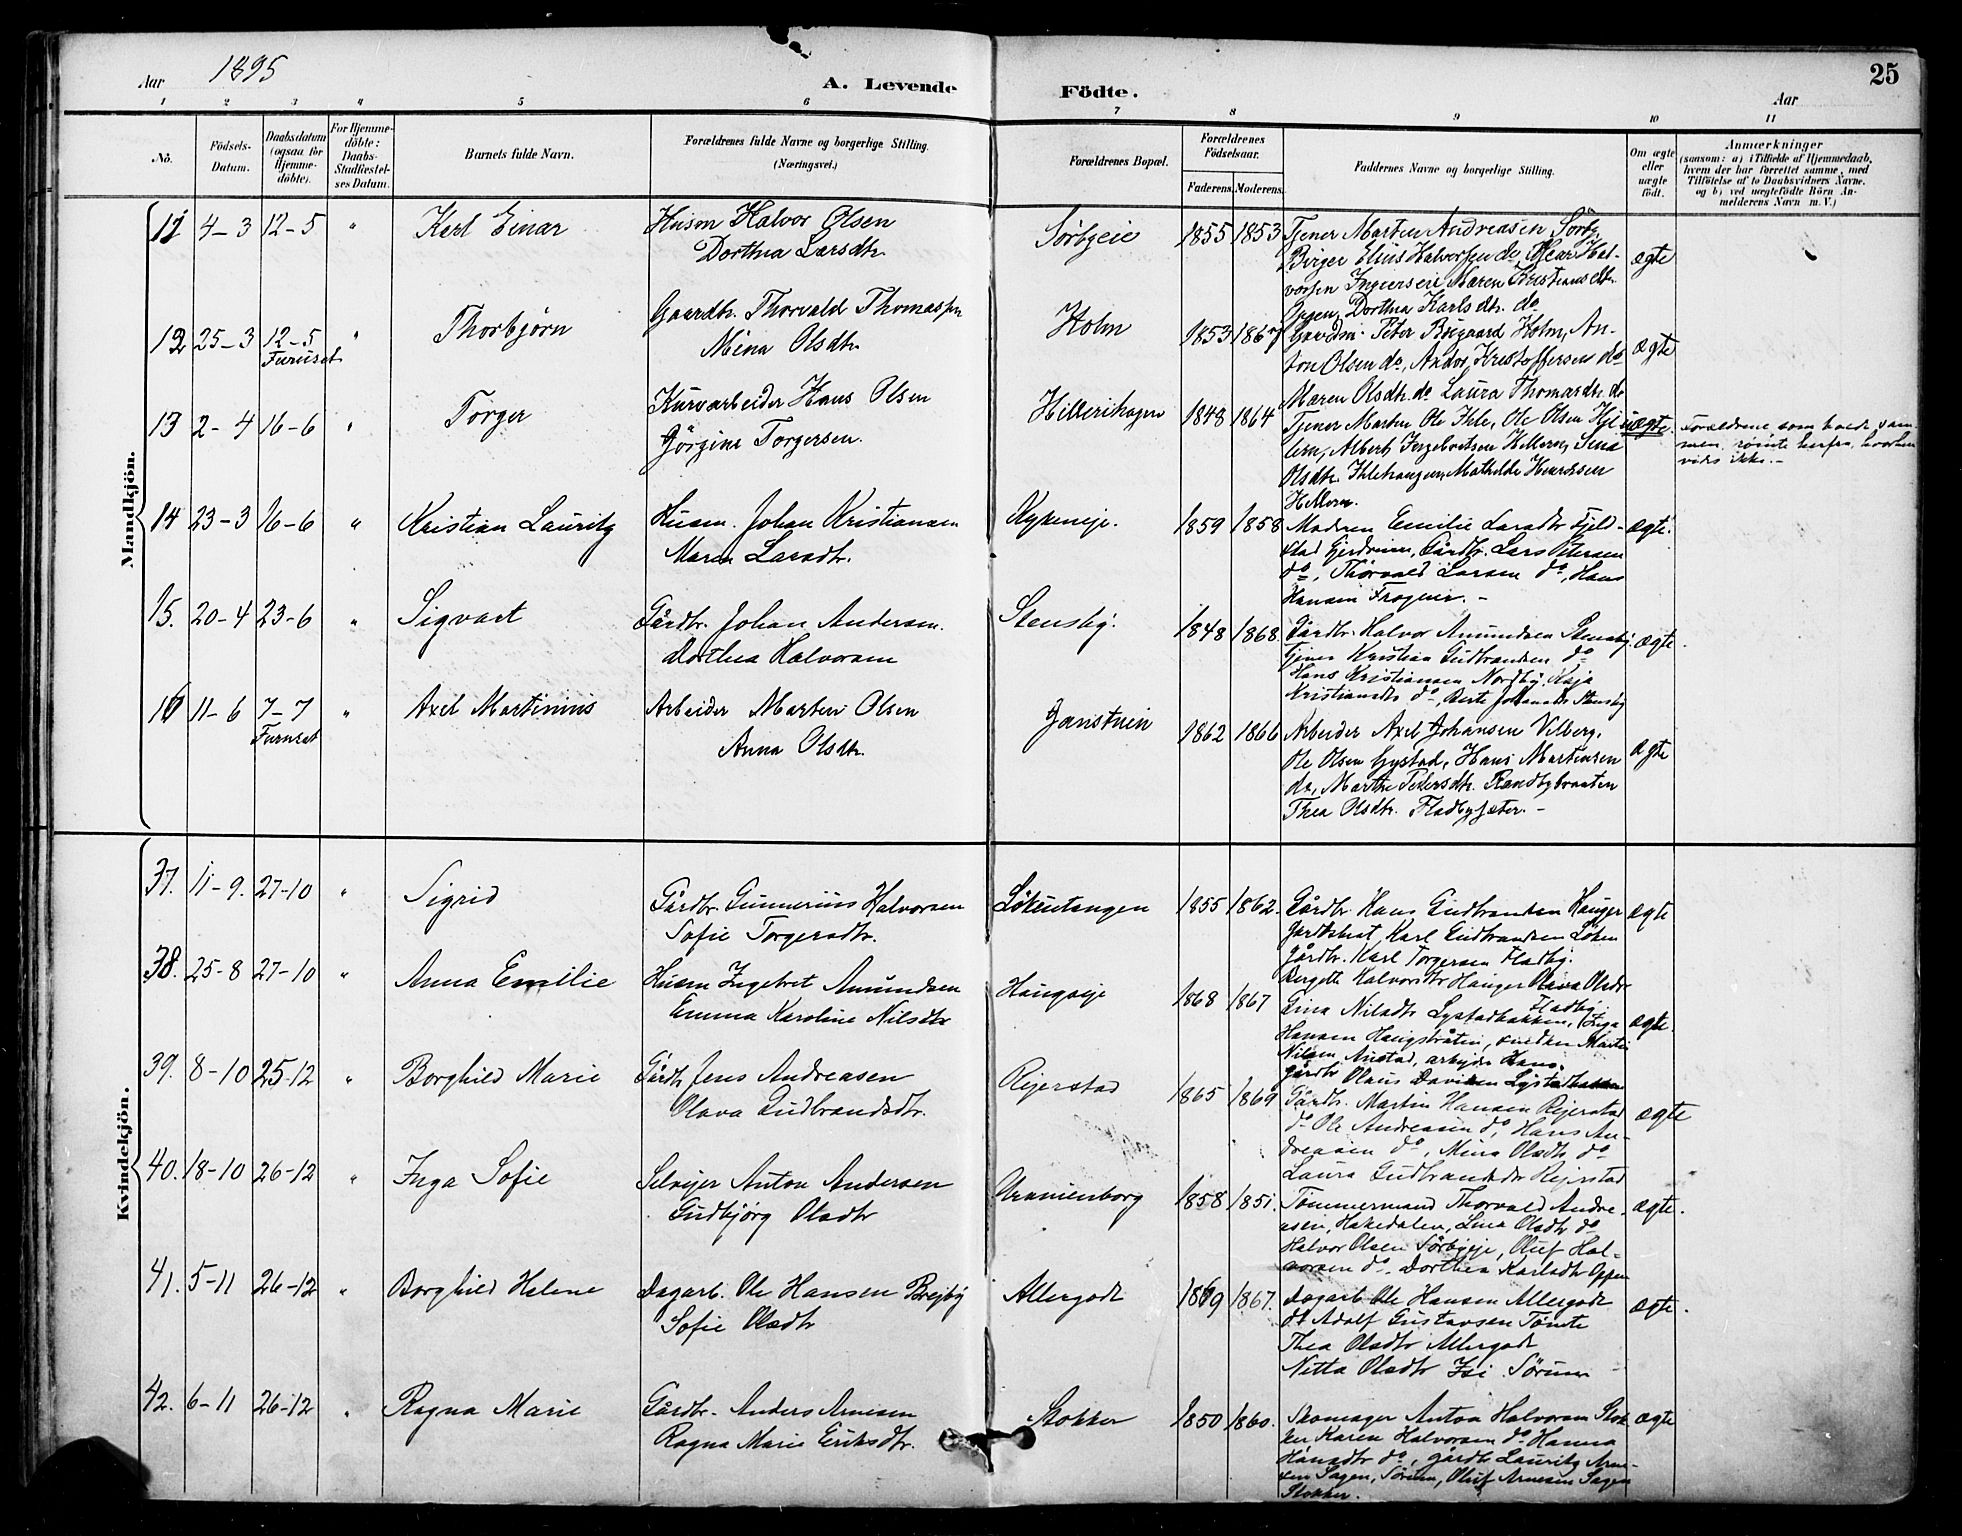 Aar 1895
A. Levende Födte.
25
Aar
1 2 3 4 5 6 7 8 9 10 11
No.
Födsels-Datum.
Daabsdatum (ogsaa for Hjemme-döbte).
For Hjemme-döbte: Daabs-Stadfæstel-ses Datum.
Barnets fulde Navn.
Forældrenes fulde Navne og borgerlige Stilling.
(Næringsvei.)
Forældrenes Bopæl.
Forældrenes Födselsaar.
Faderens. Moderens.
Faddernes Navne og borgerlige Stilling.
Om ægte eller uægte födt.
Anmærkninger
(saasom: a) i Tilfælde af Hjemmedaab, hvem der har forrettet samme, med Tilföielse af to Daabsvidners Navne, og b) ved uægtefödte Börn An-melderens Navn m. V.)
Mandkjön.
11 4-3 12-5 " Karl Einar
Husm Halvor Olsen
Dorthea Larsdtr.
Sörbyeie 1855 1853
Tjener Martin Andreasen Sörby
Birger Elius Halvorsen do, Oscar Hal-
vorsen Maren Kristiansdtr.
Dorthea Karlsdtr. do
ægte
12 25-3 12-5 Furuset " Thorbjörn
Gaardbr. Thorvald Thomassen
Mina Olsdtr.
Holm 1853 1867
Gaardm. Peter Holm, An-
ton Olsen do, Andor Kristoffersen do
Maren Olsdtr. do Laura Thomasdtr. do
ægte
13 2-4 16-6 " Torger
Kurvarbeider Hans Olsen
Jörgine Torgersen.
Hillerihagen 1848 1864
Tjener Martin Ole Ihle, Ole Olsen Hil-
lern, Albert Ingebretsen Hillern, Sina
Olsdtr. Ihlehaugen, Mathilde
Hillern.
uægte.
Forældrene som boede sam-
men, rømte herfra, hvorhen
vides ikke.-
14 23-3 16-6 " Kristian Lauritz
Husm. Johan Kristiansen
Maren Larsdtr.
Rykeneje. 1859 1858
Madam Emilie Larsdtr Fjeld-
stad Gjerdrum, Gårdbr. Lars Petersen
do, Thorvald Larsen do, Hans
Hansen Frogner. -
ægte.
15. 20-4 23-6 " Sigvart
Gårdbr. Johan Andersen.
Dorthea Halvorsen
Stensby. 1848 1868.
Gårdbr. Halvor Amundsen Stensby
Tjener Kristian Gudbrandsen do
Hans Kristiansen Nordby, Kaja
Kristiansdtr do, Berte Johansdtr Stensby
ægte.
16 11-6 7-7 Furuset " Axel Martinius
Arbeider Martin Olsen
Anna Olsdtr.
1862 1866
Arbeider Axel Johansen Vilberg.
Ole Olsen Gystad, Hans Martinsen
do, Marthe Pedersdtr. Randbybraaten
Thea Olsdtr. Fladbysæter. -
ægte
Kvindekjön.
37. 11-9. 27-10 " Sigrid
Gårdbr. Gunnerius Halvorsen
Sofie Torgersdtr.
Lökentangen 1855 1862.
Gårdbr. Hans Gudbrandsen Hauger
Karl Gudbrandsen Löken
Gårdbr. Karl Torgersen Fladby.
Bergitte Halvorsdtr Hauger Olava Olsdtr
Fladby
ægte
38. 25-8 27-10 " Anna Emilie
Husm Ingebret Amundsen
Emma Karoline Nilsdtr
Haugseje 1868 1867
Gina Nilsdtr Lystadbakken, Inga
Hansen Haugsbråten, Martin
Nilsen Anstad, arbejder Hans
gårdbr Olaus Davidsen Lystadbakken
ægte.
39. 8-10 25-12 " Borghild Marie
Gårdbr Jens Andreasen
Olava Gudbrandsdtr.
Rejerstad 1865 1869
Gårdbr. Martin Hansen Rejerstad
do Ole Andreasen do, Hans An-
dreasen do, Mina Olsdtr do
Laura Gudbrandsdtr Rejerstad
ægte
40. 18-10 26-12 " Inga Sofie
Selvejer Anton Andersen
Gudbjörg Olsdtr
Uranienborg 1858 1851.
Tömmermand Thorvald Andre-
asen, Hakedalen, Lina Olsdtr do
Halvor Olsen Sörbyeje, Oluf Hal-
vorsen do. Dorthea Karlsdtr Oppen
ægte.
41. 5-11 26-12 " Borghild Helene
Dagarb. Ole Hansen Brejby
Sofie Olsdtr
Allergodt 1869 1867.
Dagarb Ole Hansen Allergodt
do Adolf Gustavsen Tömte
Thea Olsdtr Allergodt
Nitta Olsdtr Sörum
ægte.
42. 6-11 26-12 " Ragna Marie
Gårdbr. Anders Arnesen
Ragna Marie Eriksdtr.
Stokker 1850 1860.
Skomager Anton Halvorsen Stok-
ker Karen Halvorsen do Hanna
Hansdtr do, gårdbr Lauritz Arne-
sen Sagen, Sörum, Oluf Arnesen Sagen
Stokker.
ægte